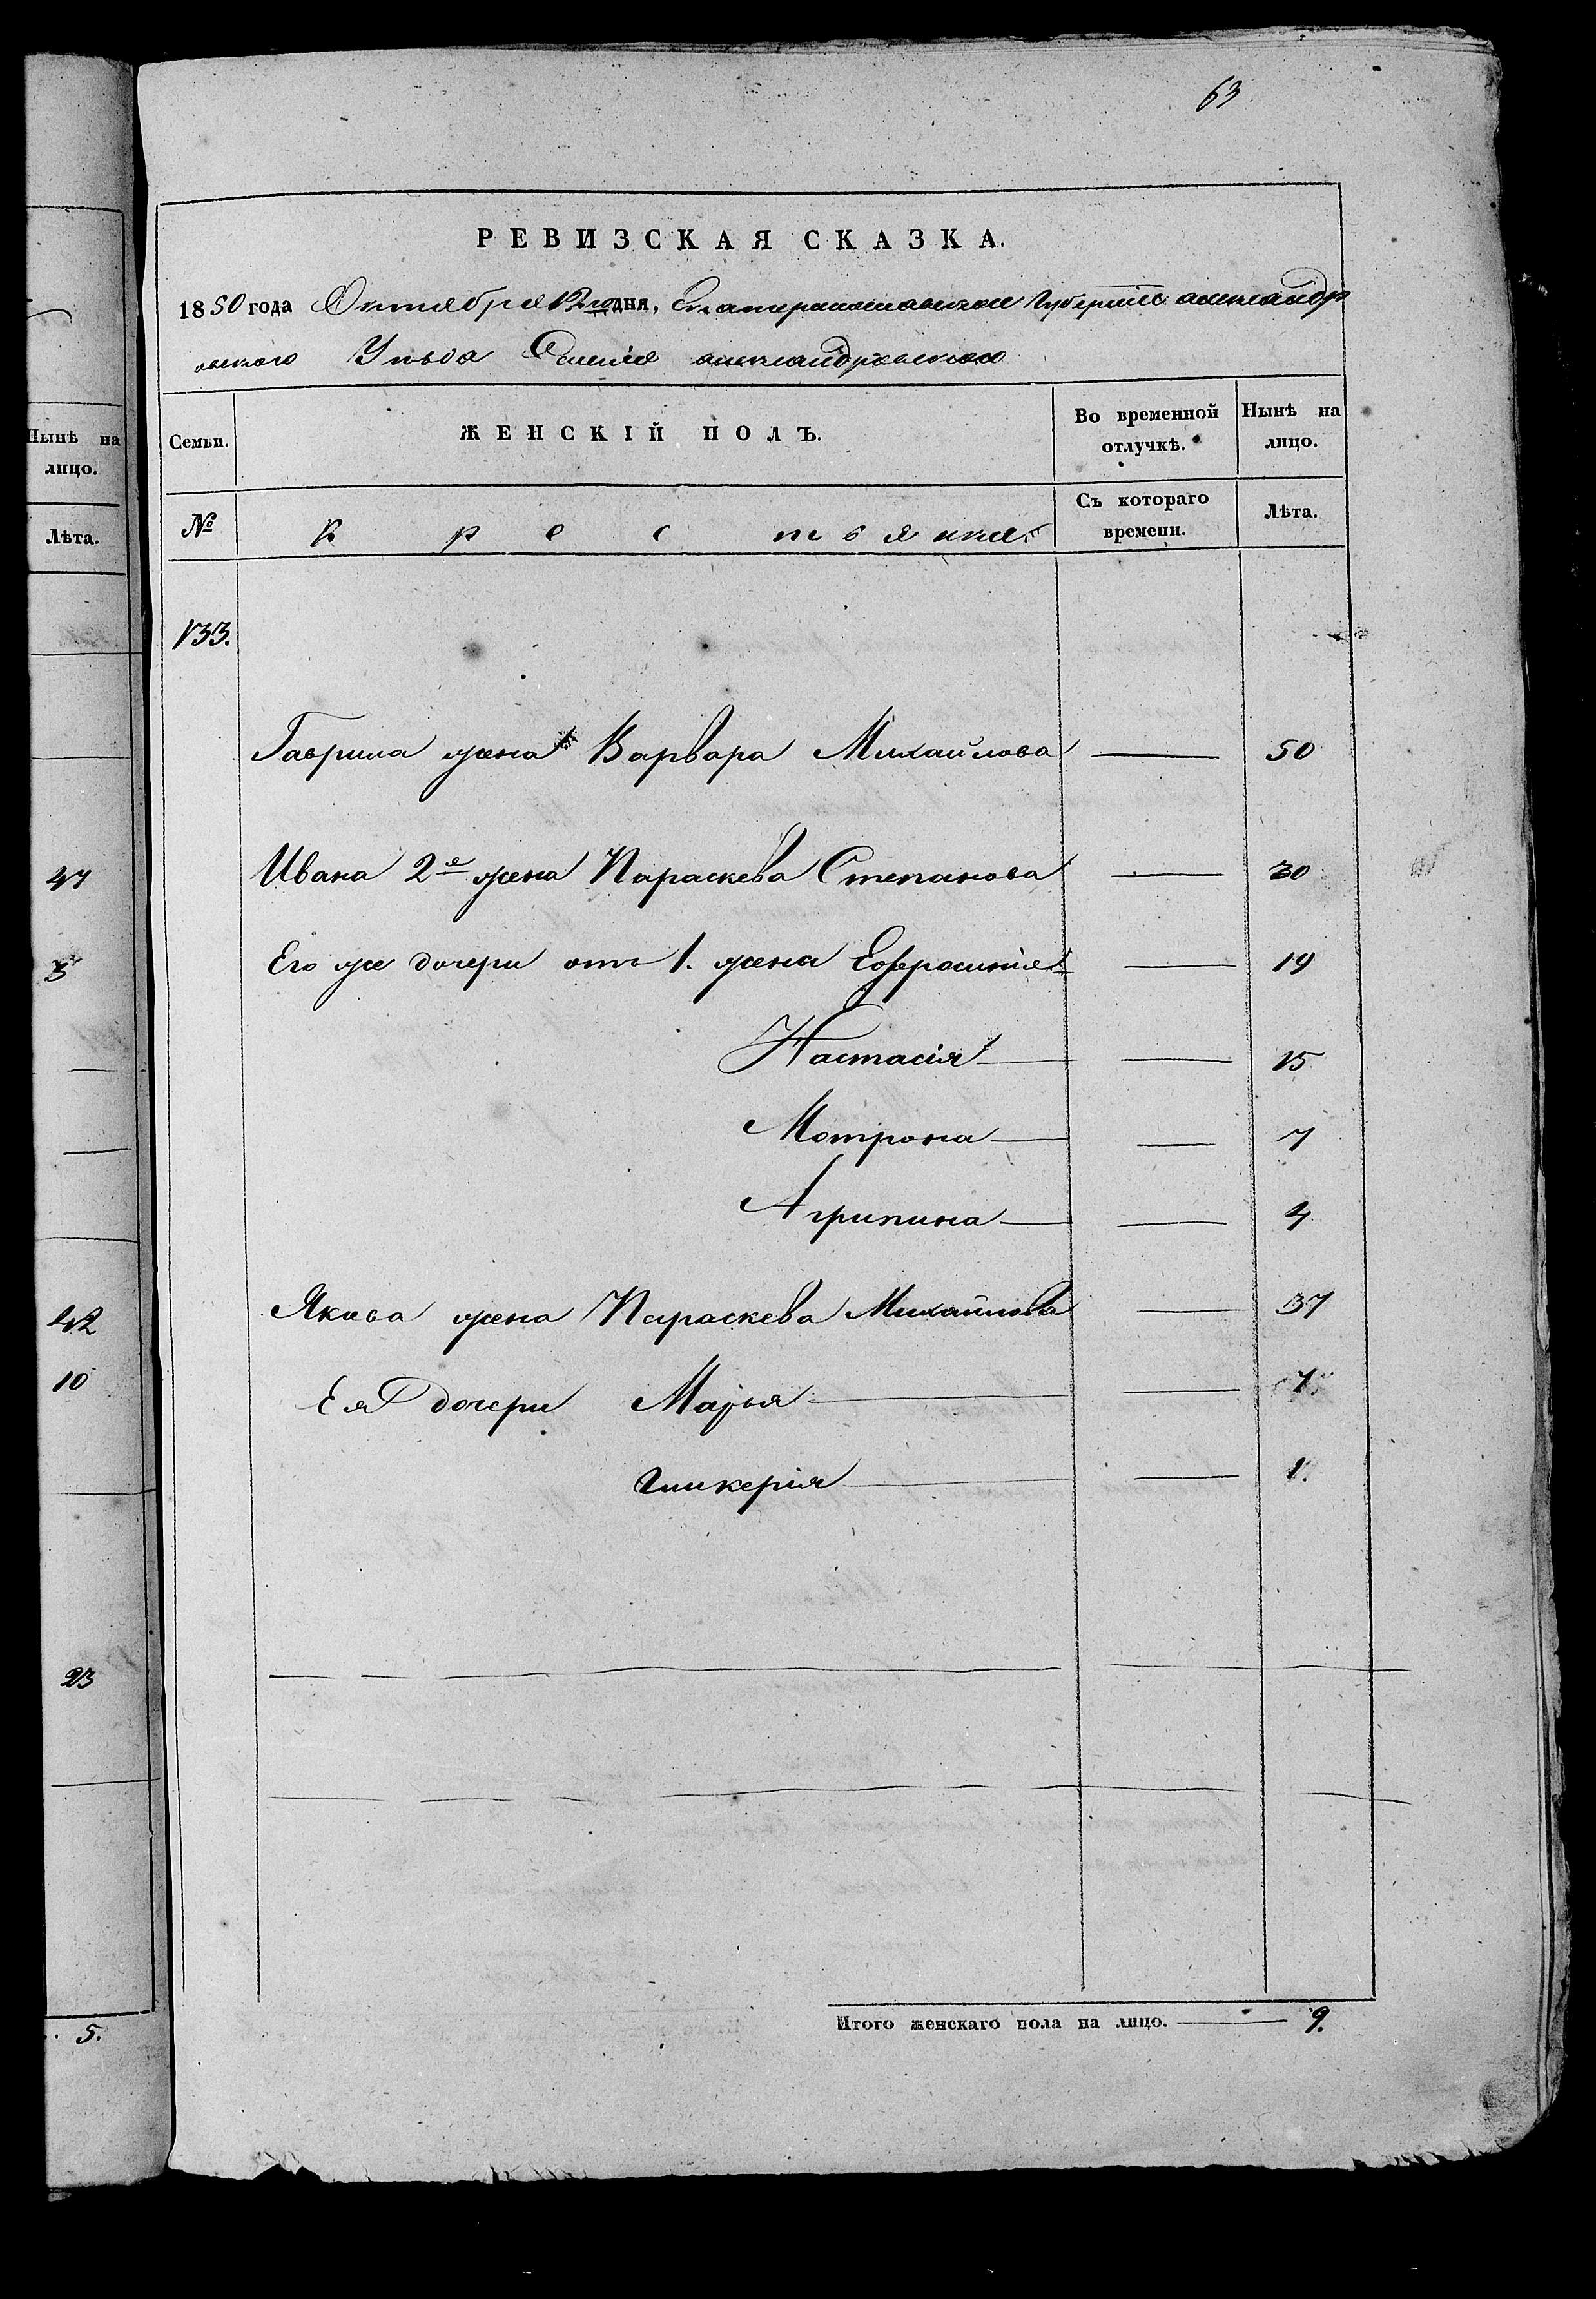 63
РЕВИЗСКАЯ СКАЗКА.
1850 года Октября дня, Екатеринославской Губерніи Александр
овского Уѣзда Селенія Александровского
Нынѣ на лицо.
Семьи.
ЖЕНСКІЙ ПОЛЪ.
Во временной отлучкѣ.
Нынѣ на лицо.
Лѣта.
№
Крестьянка
Съ котораго времени.
Лѣта.
133.
Гаврила жена Варвара Михайлова — 50
47
Ивана 2е жена Параскева Степанова — 30
3
Его же дочери отъ 1. жена Ефросинія — 19
Настасія — 15
Мотрона — 7
Агрипина — 4
42
Якова жена Параскева Михайлова — 37
10
Ея дочери Марья — 7.
Гликерія — 1.
23
5.
Итого женскаго пола на лицо. — 9.